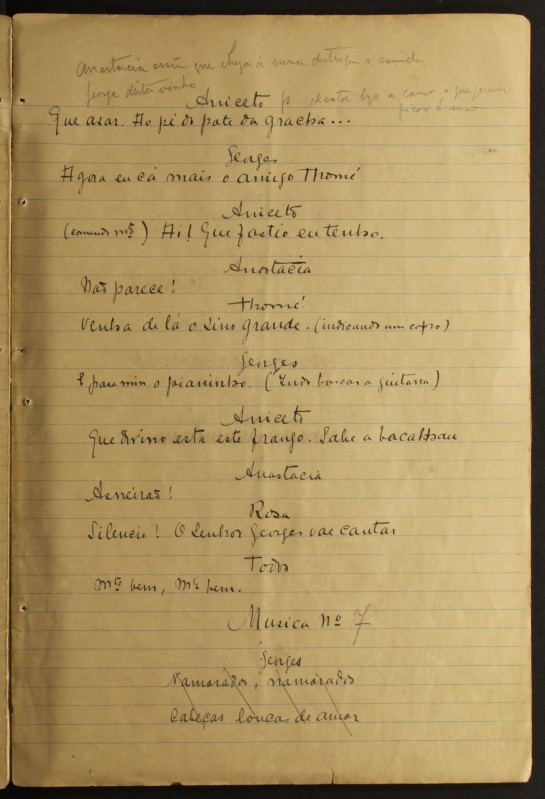 Anastacia assim que chega á mesa distribue a comida
Jorge deita vinho
Aniceto
Que asar. Ao pé do pote da gracha...
Georges
Agora eu cá mais o amigo Thomé
Aniceto
(comendo mto) Ai! Que fastio eu tenho.
Anastacia
Não parece!
Thomé
Venha de lá o Sino grande. (indicando um copo)
Georges
E para mim o pianinho. (Indo buscar a guitarra)
Aniceto
Que divino está este frango. Sabe a bacalhau
Anastacia
Asneiras!
Rosa
Silencio! O Senhor Georges vae cantar
Todos
Mto bem, Mto bem.
Musica Nº 7
Georges
Namorados, namorados
Cabeças loucas de amor